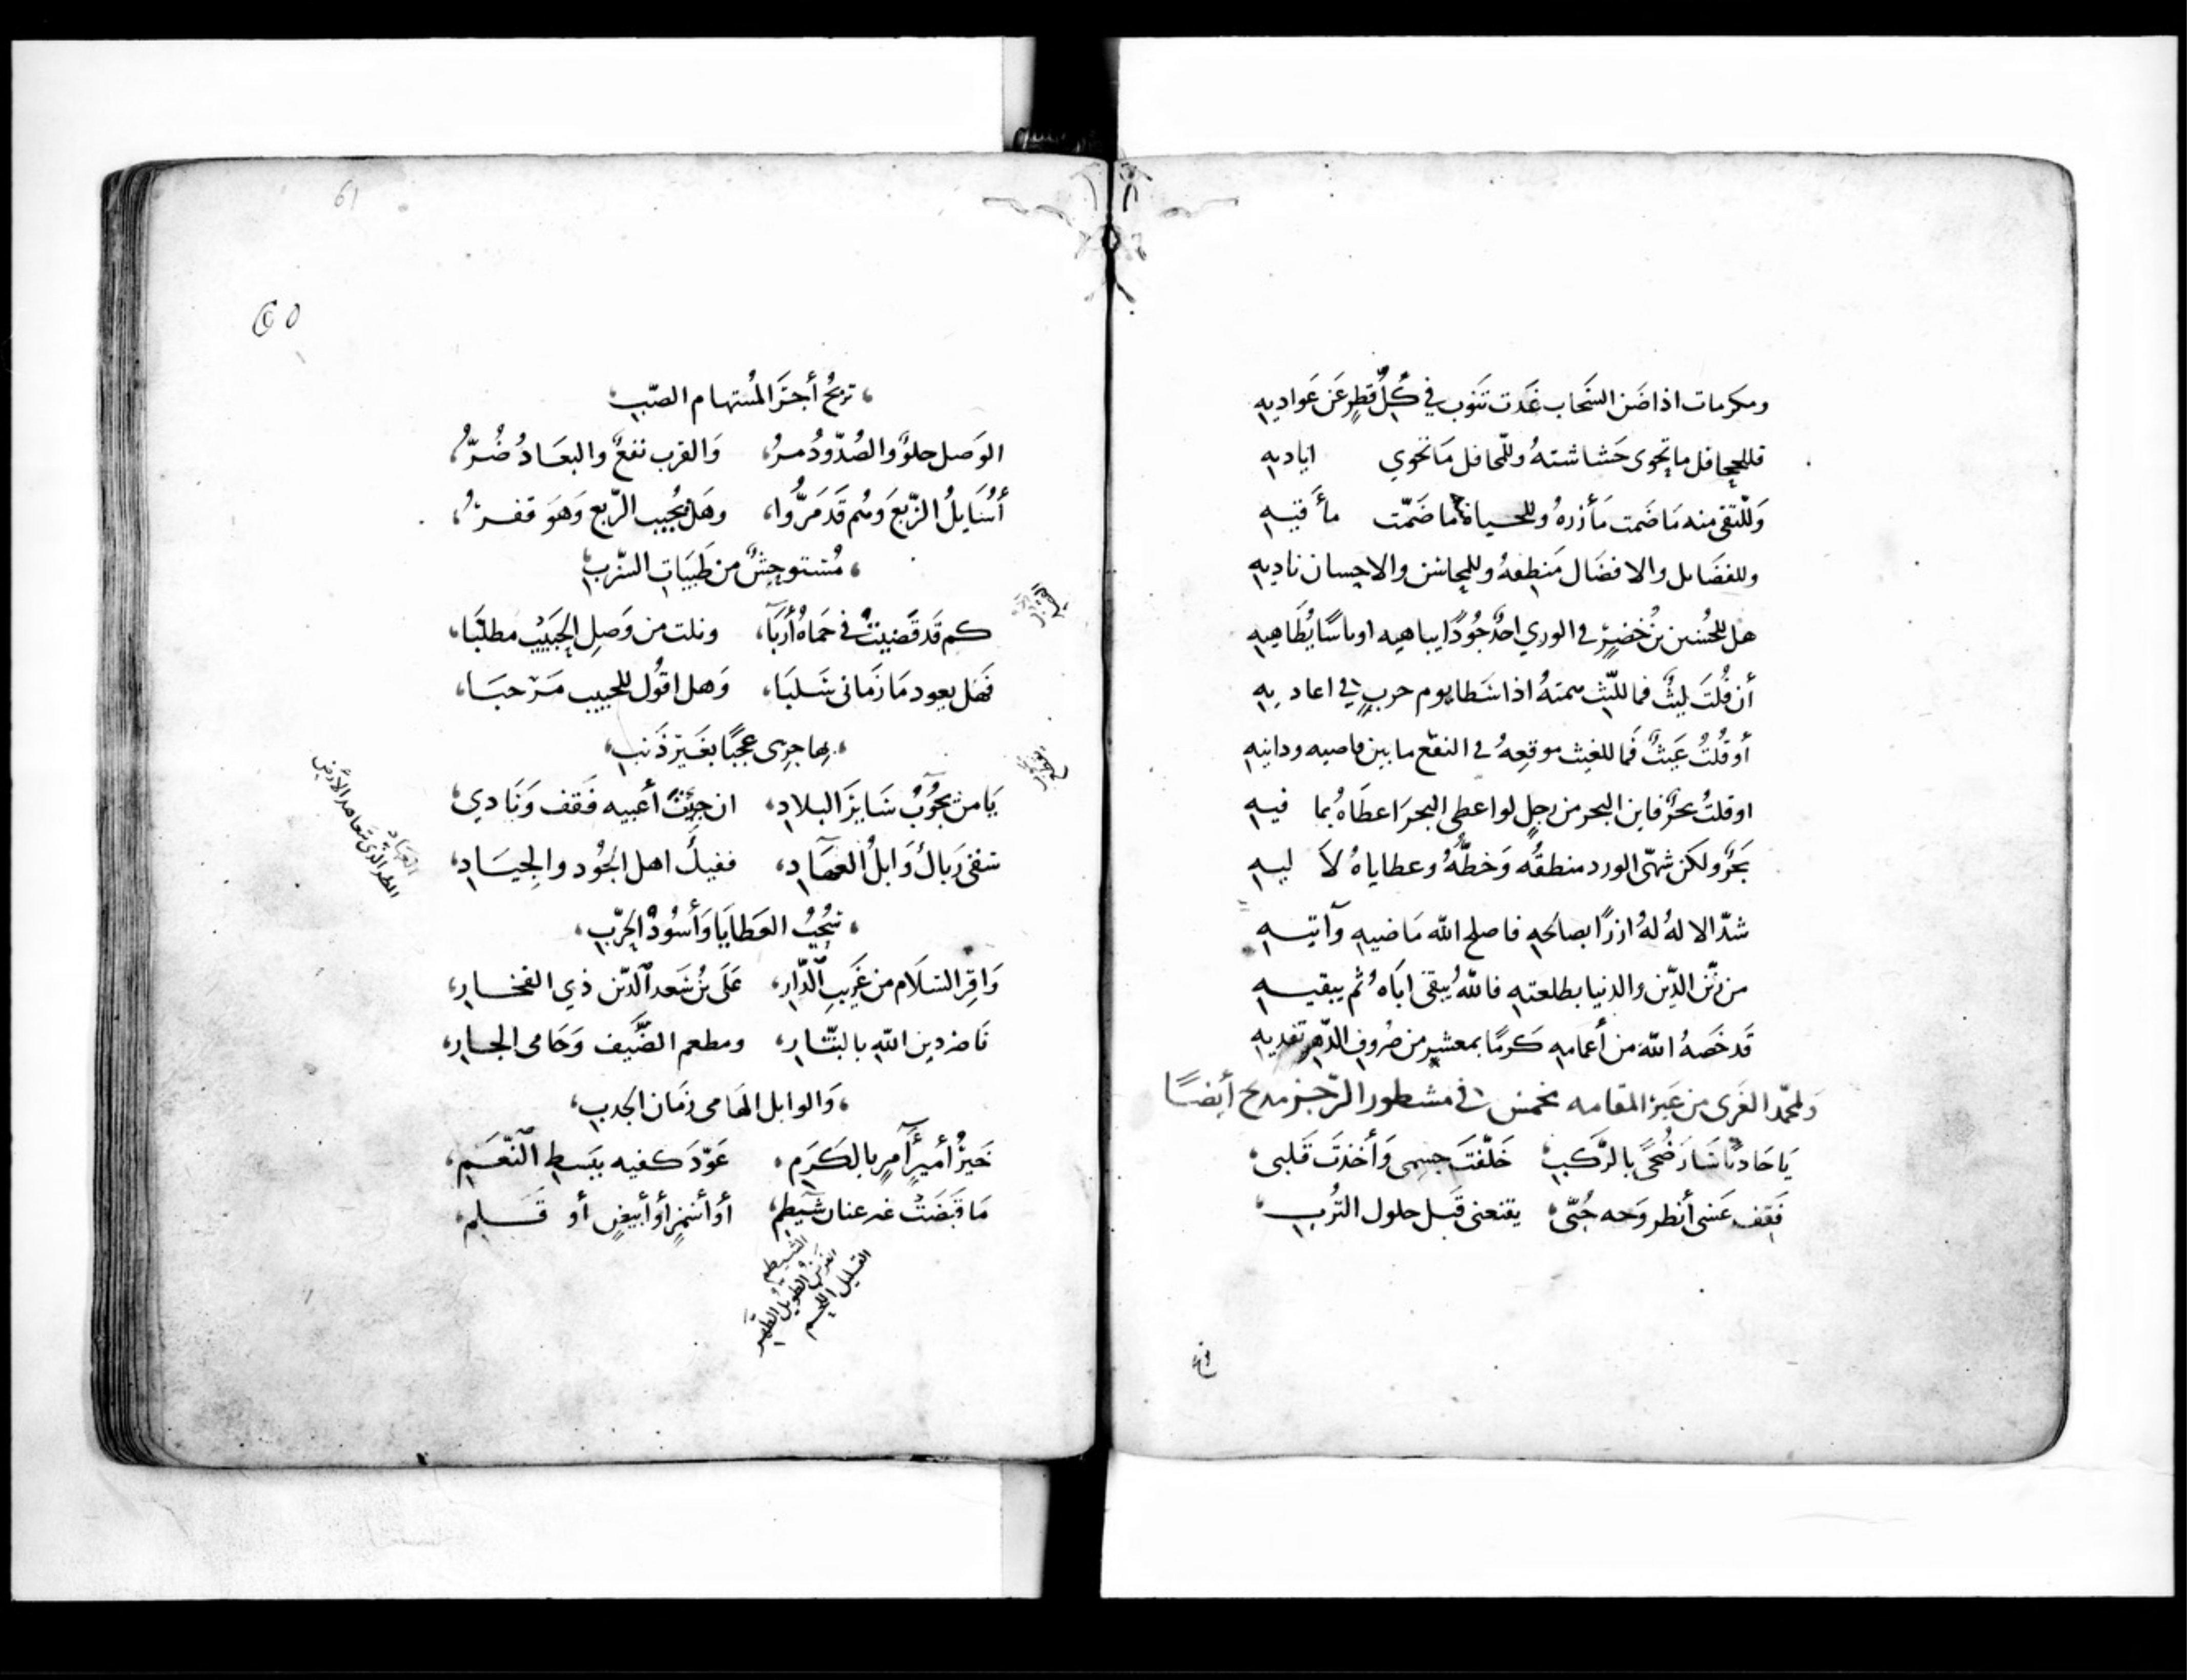 ومكرمات اذا ضن السحاب غدت تنوب في كل قطر عن عواديه
فللجحافل ما تحوى حشاشته وللمحافل ما تحوي اياديه
وللتقى منه ما ضمت مأزره وللحياة ما ضمت مأقيه
وللفضايل والافضال منطقه وللمحاسن والاحسان ناديه
هل للحسين بن خضير في الوري احد جودًا يباهيه او باسًا يضاهيه
أن قلت ليث فما لليث سمته اذا سطا يوم حرب في اعاديه
أو قلت غيث فما للغيث موقعه في النفع ما بين قاصيه ودانيه
او قلت بحر فاين البحر من رجل لو اعطى البحر اعطاه بما فيه
بحر ولكن شهي الورد منطقه وخطه وعطاياه لآليه
شد الاله له ازرًا بصالحه فاصلح الله ماضيه وآتيه
من زين الدين والدنيا بطلعته فالله يبقى اباه ثم يبقيه
قد خصه الله من أعمامه كرمًا بمعشر من صروف الدهر تفديه
ولمحمد الغرى من غير المقامه مخمس في مشطور الرجز مدح أيضًا
يا حاديًا سار ضحىً بالركب خلفت جسمى وأخذت قلبى
فقف عسى أنظر وجه حبّى يقنعنى قبل حلول الترب
61
60
تربح أجر المستهام الصّب
الوصل حلو والصدود مرّ والقرب نفع والبعاد ضرّ
أسايل الربع وهم قد مرّوا وهل يجيب الربع وهو قفر
مستوحش من ظبيات السرب
كم قد قضيت في حماه أربا ونلت من وصل الحبيب مطلبا
فهل يعود ما زمانى سلبا وهل اقول للحبيب مرحبا
بها جرى عجبًا بغير ذنب
يا من يجوب ساير البلاد ان جئت أعبيه فقف ونادي
سقى رباك وابل العهاد ففيك اهل الجود والجياد
العهاد
المطر الذي يتعاهد الأرض
سحب العطايا وأسود الحرب
واقر السلام من غريب الدار على بن سعد الدين ذي الفخار
ناصر دين الله بالبتار ومطعم الضيف وحامى الجار
والوابل الهامى زمان الجدب
خير أمير آمر بالكرم عوّد كفيه ببسط النعم
ما قبضت غير عنان شيظم أو أسمر أو أبيض أو قلم
الشيظم
الفرس الطويل الظهر
القليل اللحم